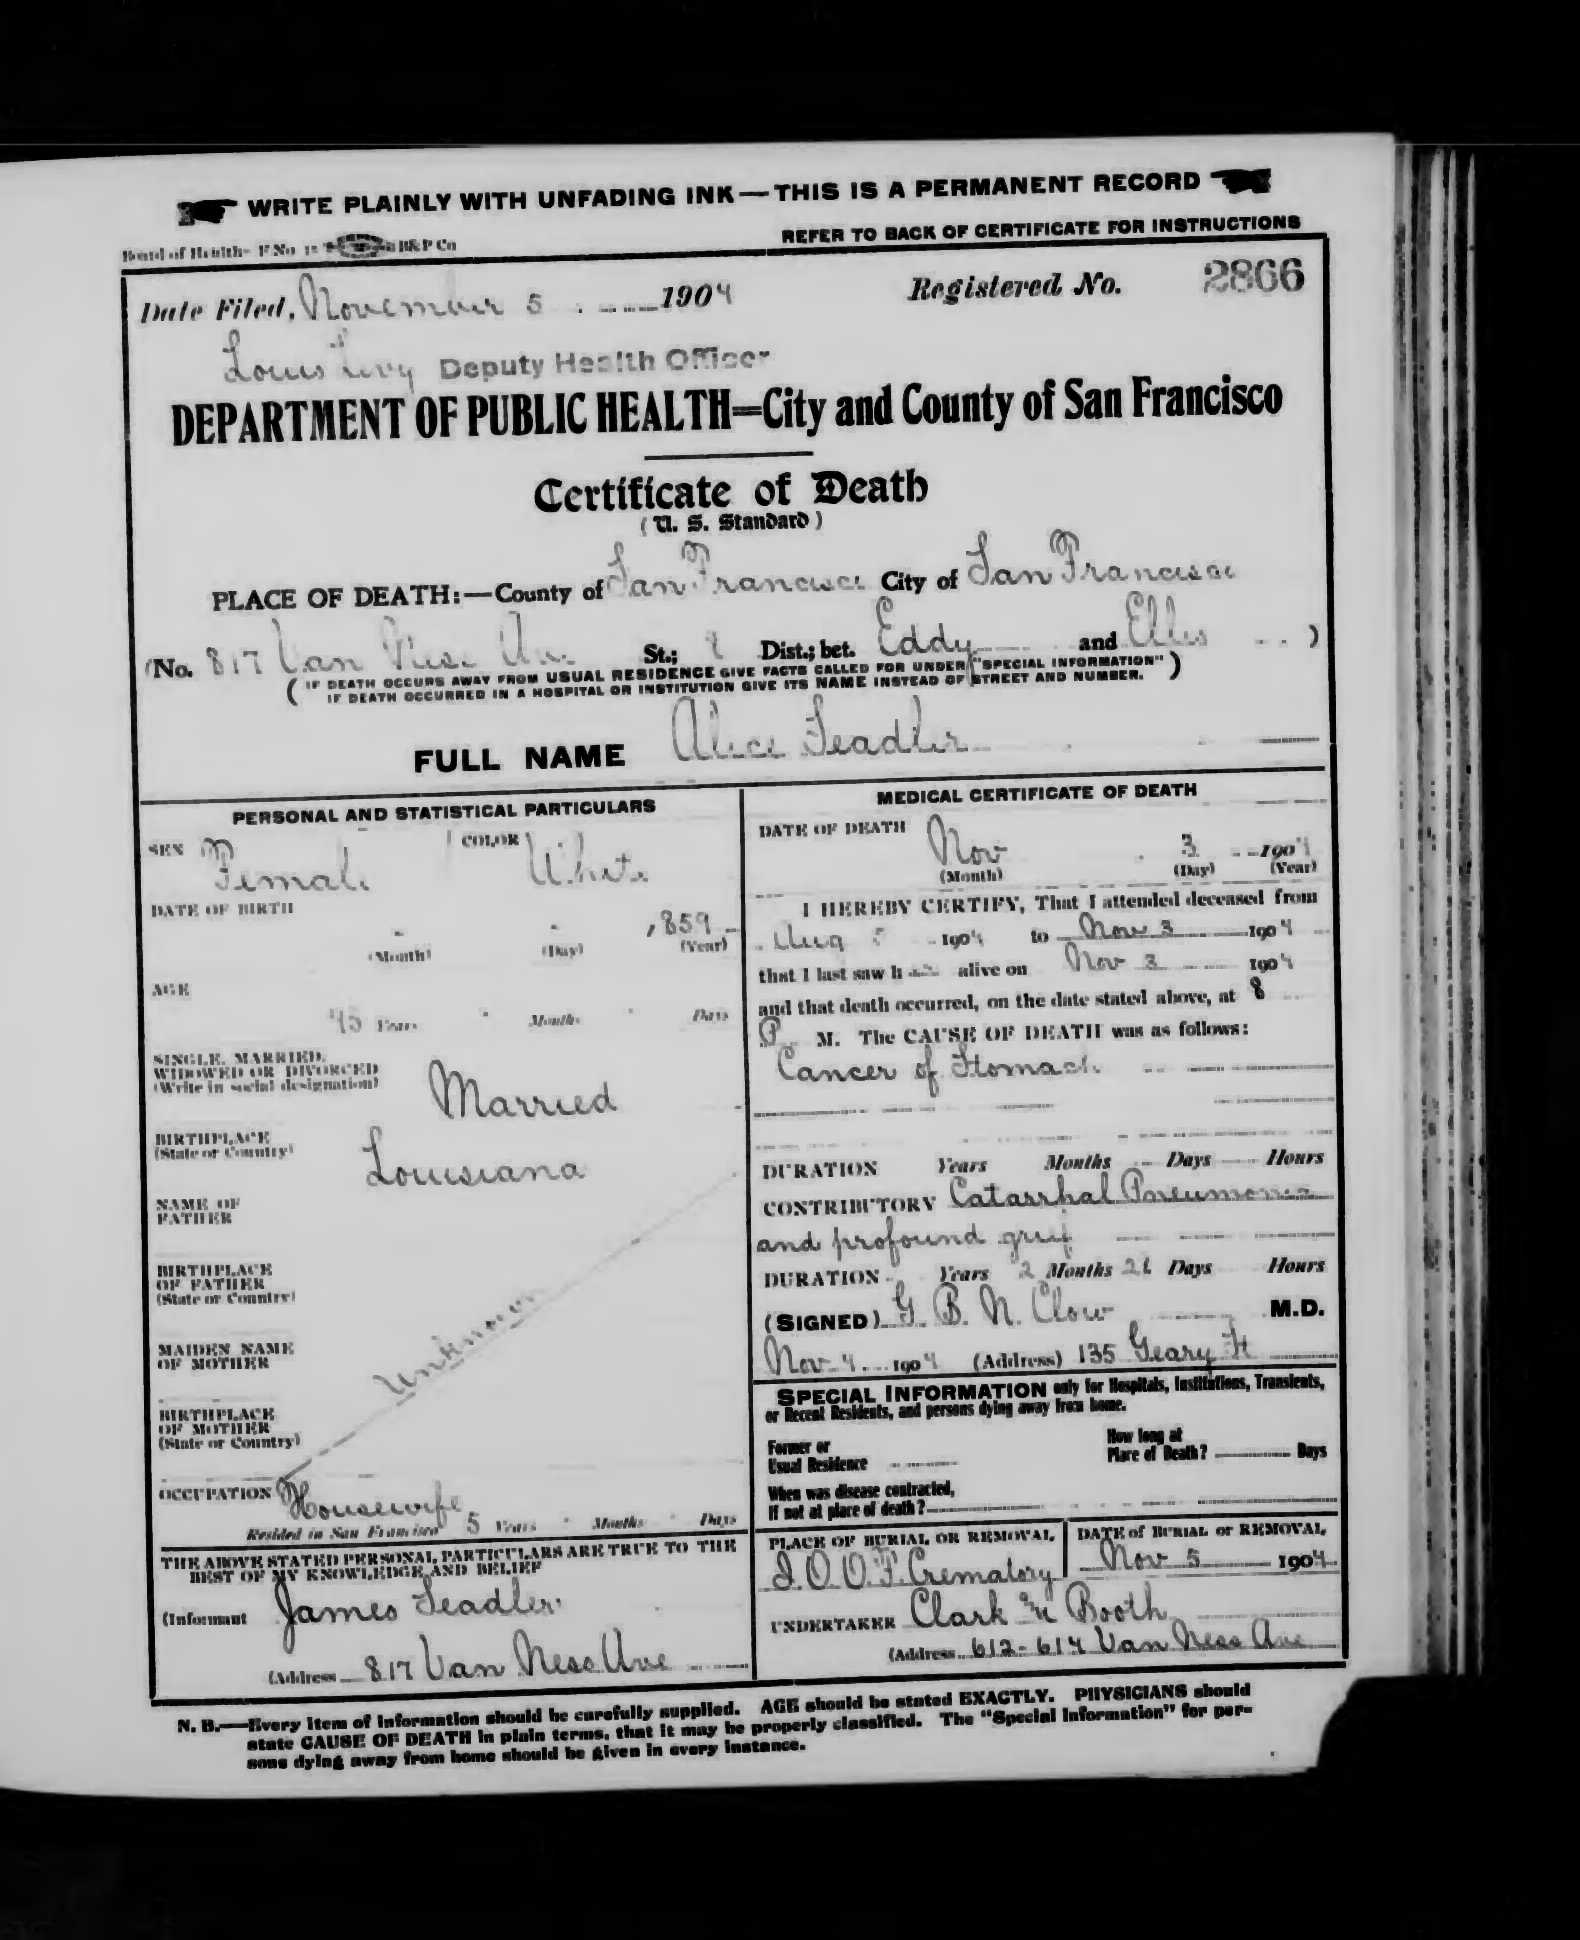 WRITE PLAINLY WITH UNFADING INK — THIS IS A PERMANENT RECORD
Board of Health- F. No. 15 B&P Co
REFER TO BACK OF CERTIFICATE FOR INSTRUCTIONS
Date Filed, November 5 1904 Registered No. 2866
Louis Levy Deputy Health Officer
DEPARTMENT OF PUBLIC HEALTH=City and County of San Francisco
Certificate of Death
(U. S. Standard)
PLACE OF DEATH:—County of San Francisco City of San Francisco
(No. 817 Van Ness Ave St.; Dist.; bet. Eddy and Ellis )
( IF DEATH OCCURS AWAY FROM USUAL RESIDENCE GIVE FACTS CALLED FOR UNDER "SPECIAL INFORMATION" )
IF DEATH OCCURRED IN A HOSPITAL OR INSTITUTION GIVE ITS NAME INSTEAD OF STREET AND NUMBER.
FULL NAME Alice Seadler
PERSONAL AND STATISTICAL PARTICULARS
SEX Female COLOR White
DATE OF BIRTH
- - 1859
(Month) (Day) (Year)
AGE
45 Years - Months - Days
SINGLE, MARRIED,
WIDOWED OR DIVORCED
(Write in social designation)
Married
BIRTHPLACE
(State or Country)
Louisiana
NAME OF
FATHER
BIRTHPLACE
OF FATHER
(State or Country)
Unknown
MAIDEN NAME
OF MOTHER
BIRTHPLACE
OF MOTHER
(State or Country)
OCCUPATION Housewife
Resided in San Francisco 5 Years - Months - Days
THE ABOVE STATED PERSONAL PARTICULARS ARE TRUE TO THE
BEST OF MY KNOWLEDGE AND BELIEF
(Informant James Seadler
(Address 817 Van Ness Ave
MEDICAL CERTIFICATE OF DEATH
DATE OF DEATH
Nov 3 1904
(Month) (Day) (Year)
I HEREBY CERTIFY, That I attended deceased from
Aug 5 1904 to Nov 3 1904
that I last saw her alive on Nov 3 1904
and that death occurred, on the date stated above, at 8
P. M. The CAUSE OF DEATH was as follows:
Cancer of Stomach
DURATION Years Months Days Hours
CONTRIBUTORY Catarrhal Pneumonia
and profound grief
DURATION Years 2 Months Days Hours
(SIGNED) G. B. N. Clow M.D.
Nov 4 1904 (Address) 135 Geary St
SPECIAL INFORMATION only for Hospitals, Institutions, Transients,
or Recent Residents, and persons dying away from home.
Former or
Usual Residence
How long at
Place of Death? Days
When was disease contracted,
If not at place of death?
PLACE OF BURIAL OR REMOVAL
I. O. O. F. Crematory
DATE of BURIAL or REMOVAL
Nov 5 1904
UNDERTAKER Clark & Booth
(Address 612-614 Van Ness Ave
N. B.—Every item of information should be carefully supplied. AGE should be stated EXACTLY. PHYSICIANS should
state CAUSE OF DEATH in plain terms, that it may be properly classified. The "Special Information" for per-
sons dying away from home should be given in every instance.